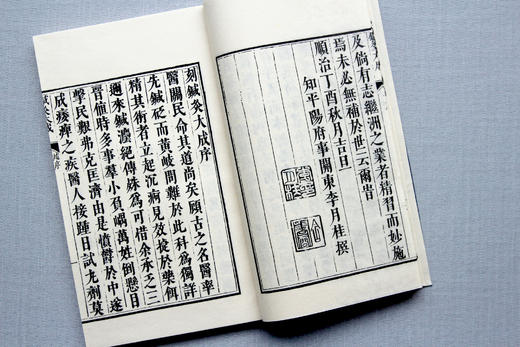 及倘有志繼洲之業者精習而妙施
焉未必無補於世云爾旹
順治丁酉秋月吉旦
知平陽府事關東李月桂撰
刻鍼灸大成序
醫關民命其道尚矣顧古之名醫率
先鍼砭而黃岐問難於此科為獨詳
精其術者立起沉痾見效捷於藥餌
邇來鍼灋絕傳殊為可惜余承乏三
晉值時多事羣小負嵎萬姓倒懸目
擊民艱弗克匡濟由是憤鬱於中遂
成痿痺之疾醫人接踵日試丸劑莫